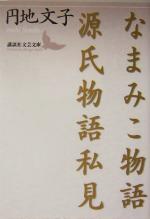 円地文子
講談社文芸文庫
なまみこ物語
源氏物語私見